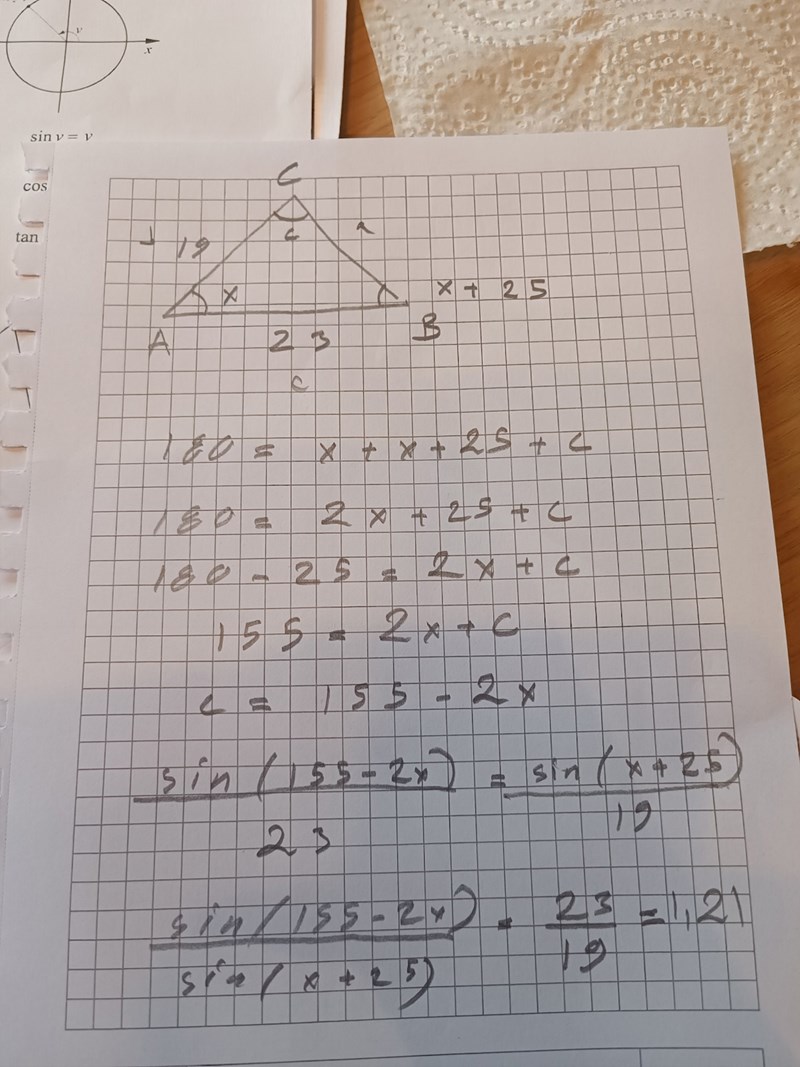 v
x
sin v = v
cos
tan
C
19
c
x
x + 25
A
23
B
c
180 = x + x + 25 + c
180 = 2x + 25 + c
180 - 25 = 2x + c
155 = 2x + c
c = 155 - 2x
sin(155-2x) = sin(x+25)
23 19
sin(155-2x) = 23 = 1,21
sin(x+25) 19